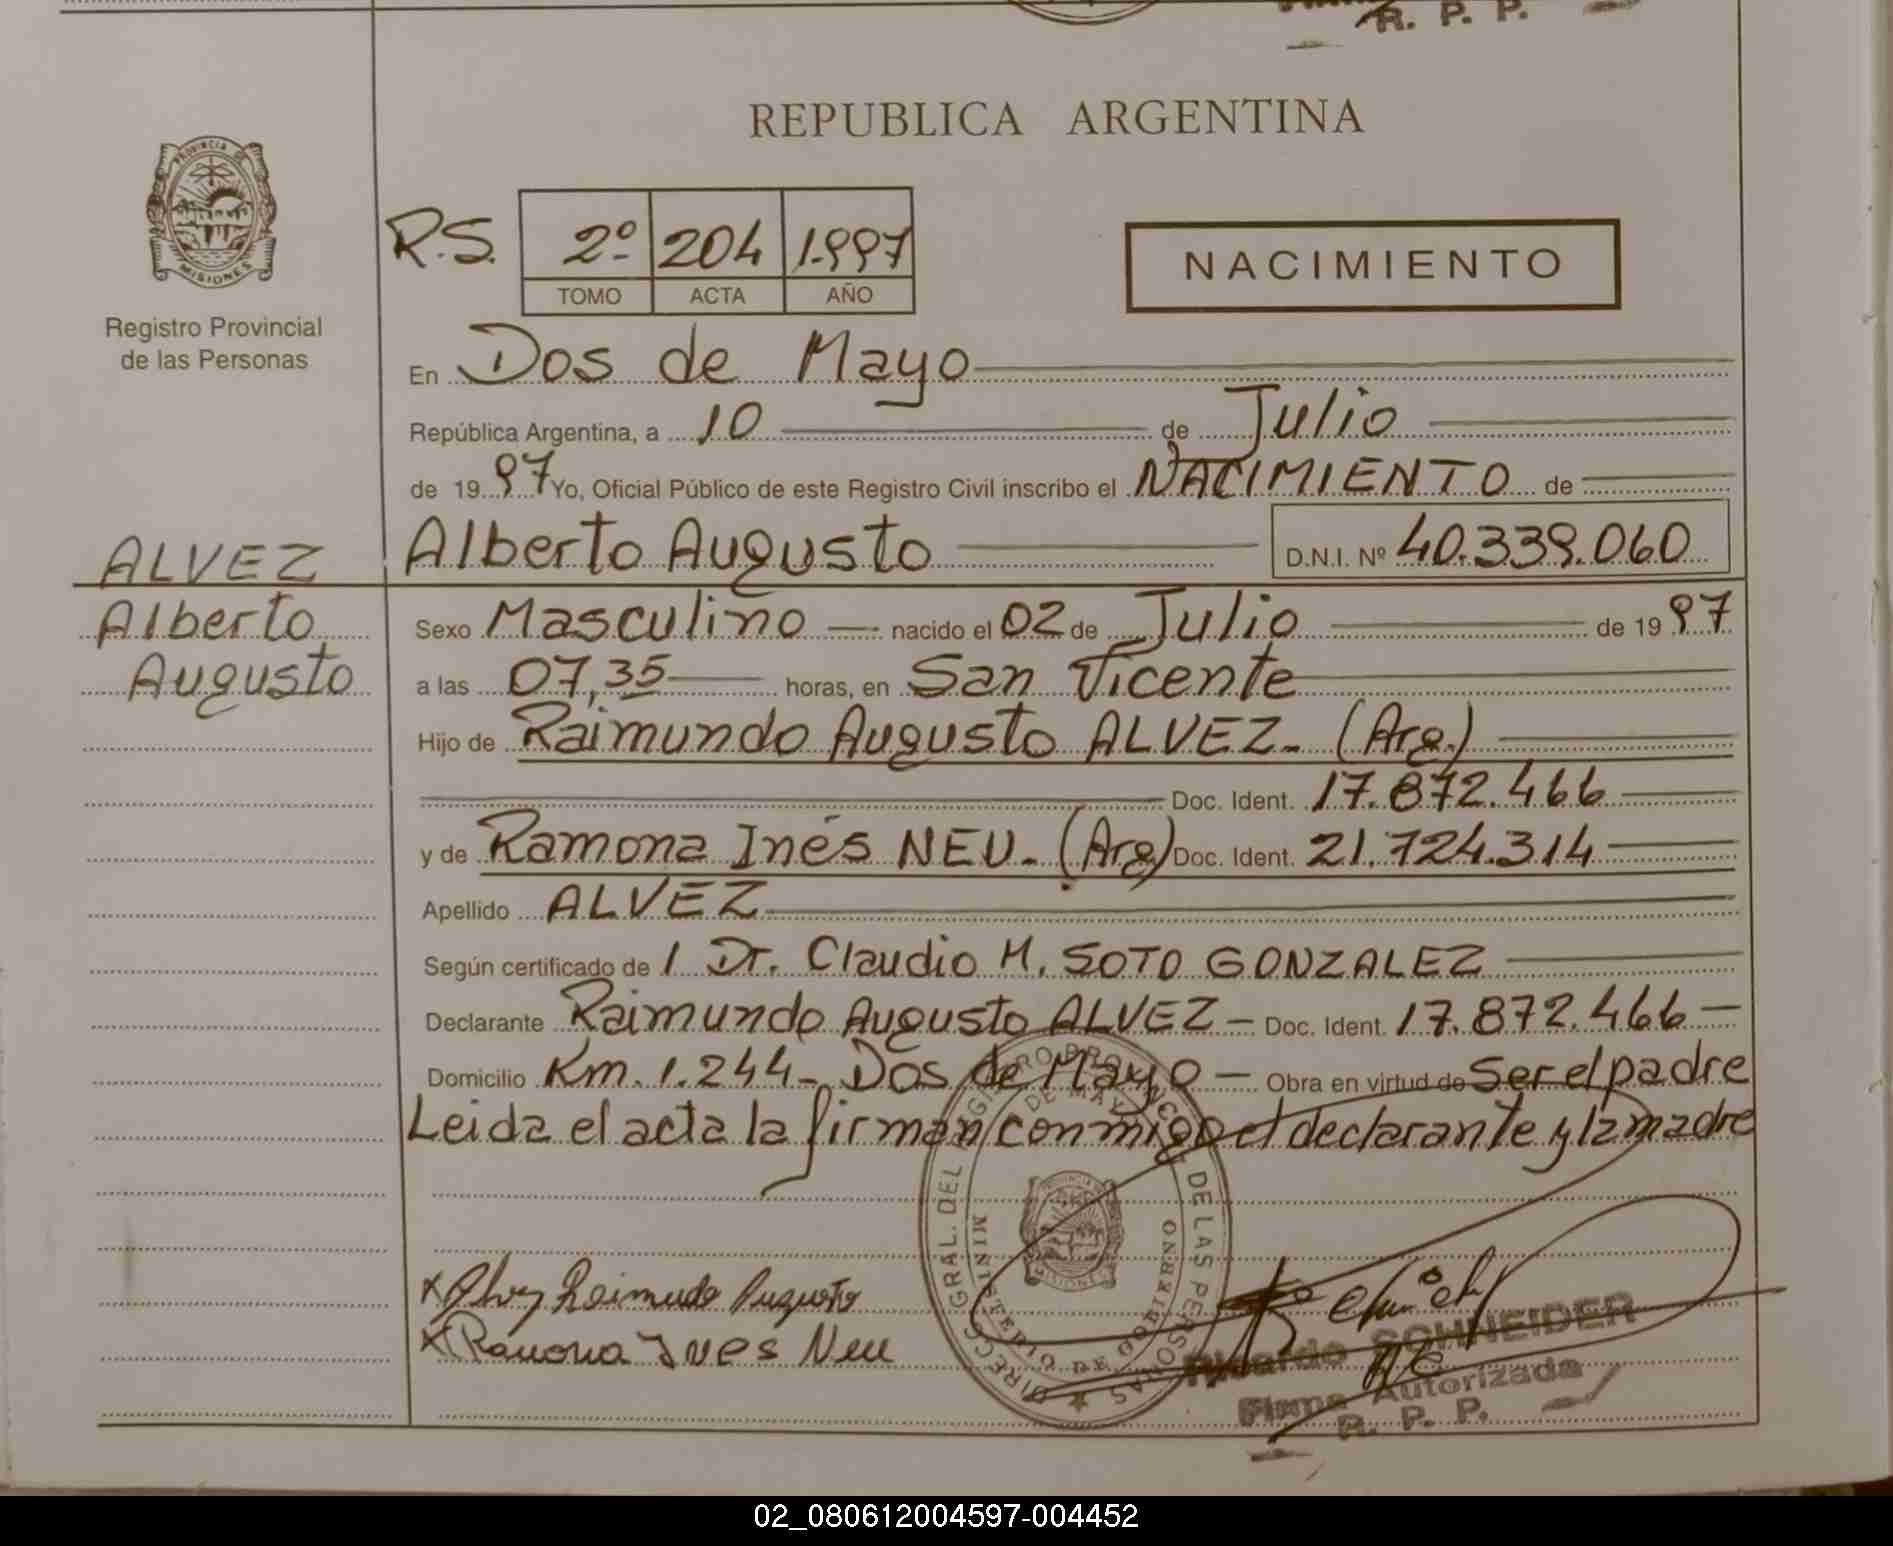 R. P. P.
REPUBLICA ARGENTINA
PROVINCIA DE MISIONES
Registro Provincial
de las Personas
R.S. 2º 204 1.997
TOMO ACTA AÑO
NACIMIENTO
En Dos de Mayo
República Argentina, a 10 de Julio
de 1997 Yo, Oficial Público de este Registro Civil inscribo el NACIMIENTO de
ALVEZ
Alberto
Augusto
Alberto Augusto D.N.I. Nº 40.339.060
Sexo Masculino nacido el 02 de Julio de 1997
a las 07,35 horas, en San Vicente
Hijo de Raimundo Augusto ALVEZ- (Arg.)
Doc. Ident. 17.872.466
y de Ramona Inés NEU- (Arg) Doc. Ident. 21.724.314
Apellido ALVEZ
Según certificado de / Dr. Claudio H. SOTO GONZALEZ
Declarante Raimundo Augusto ALVEZ - Doc. Ident. 17.872.466 -
Domicilio Km. 1.244- Dos de Mayo - Obra en virtud de Ser el padre
Leida el acta la firman conmigo el declarante y la madre
DIRECC. GRAL. DEL REGISTRO PROVINC. DE LAS PERSONAS
DE MAYO
MINISTERIO DE GOBIERNO
x Alvez Raimundo Augusto
x Ramona Ines Neu
Ricardo SCHNEIDER
Firma Autorizada
R. P. P.
02_080612004597-004452